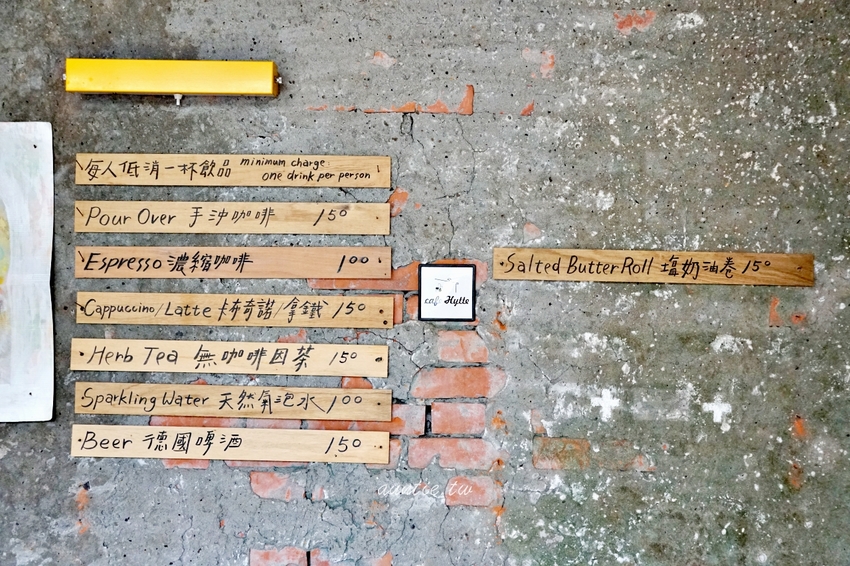 每人低消一杯飲品 minimum charge:
one drink per person
Pour Over 手沖咖啡 150
Espresso 濃縮咖啡 100
Cappuccino/Latte 卡布奇諾/拿鐵 150
Herb Tea 無咖啡因茶 150
Sparkling Water 天然氣泡水 100
Beer 德國啤酒 150
café Hytte
Salted Butter Roll 塩奶油卷 150
auntie.tw